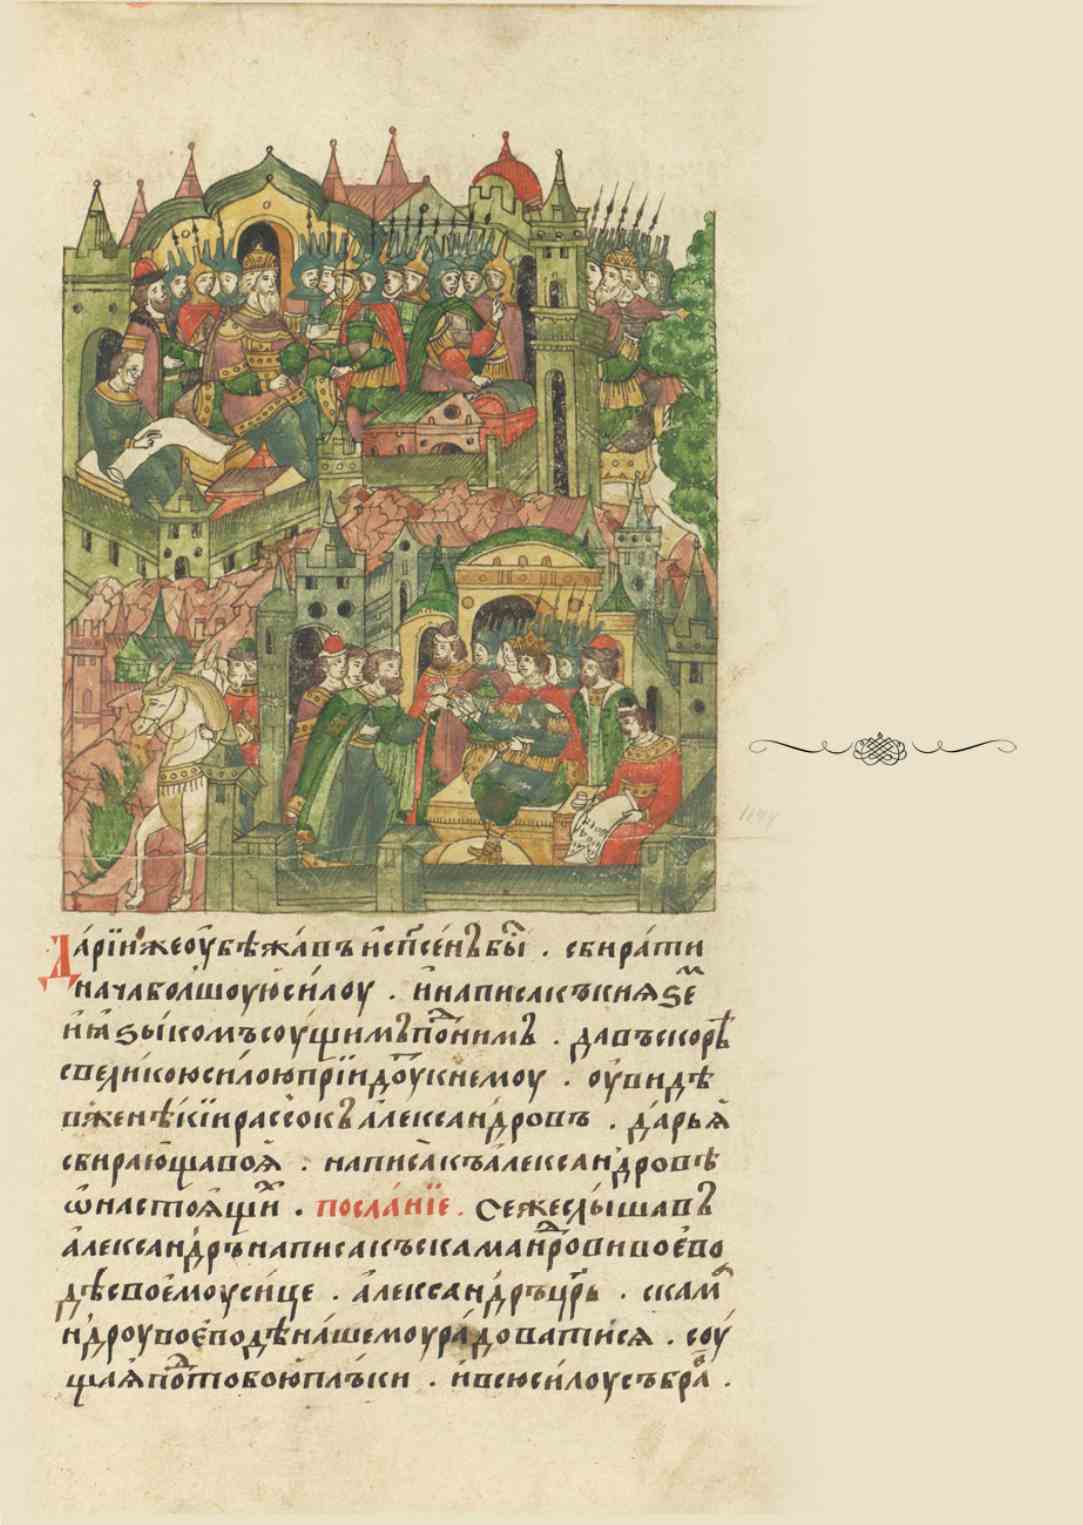 Да́рїи же оу҆бѣжа́въ и҆ спⷭ҇сенъ бы́ⷭ . сбира́ти
нача болшоую си́лоу . и҆ написа къ кнѧѕеⷨ
и҆ ꙗ҆ѕы́комъ соу́щимъ поⷣ ни́мъ . да въскорѣ
с великою силою прїи́доуⷮ к немоу . оу҆видѣ
в же нѣ́кїи рассокъ а҆леѯандровъ . да́рьꙗ
сбира́юща воꙗ҆ . написа къ а҆леѯандровѣ
ѡ҆ настоꙗ҆щиⷯ . посла́нїе . Се же слы́шавъ
а҆леѯандръ написа къ скамаⷩдрови воє҆во
дѣ своє҆моу си́це . а҆леѯандръ цр҃ь . скамⷶ
ндроу воє҆водѣ на́шемоу ра́доватисѧ . соу́
щаꙗ҆ поⷣ тобою плъ́ки . и҆ всю си́лоу събраⷡ .